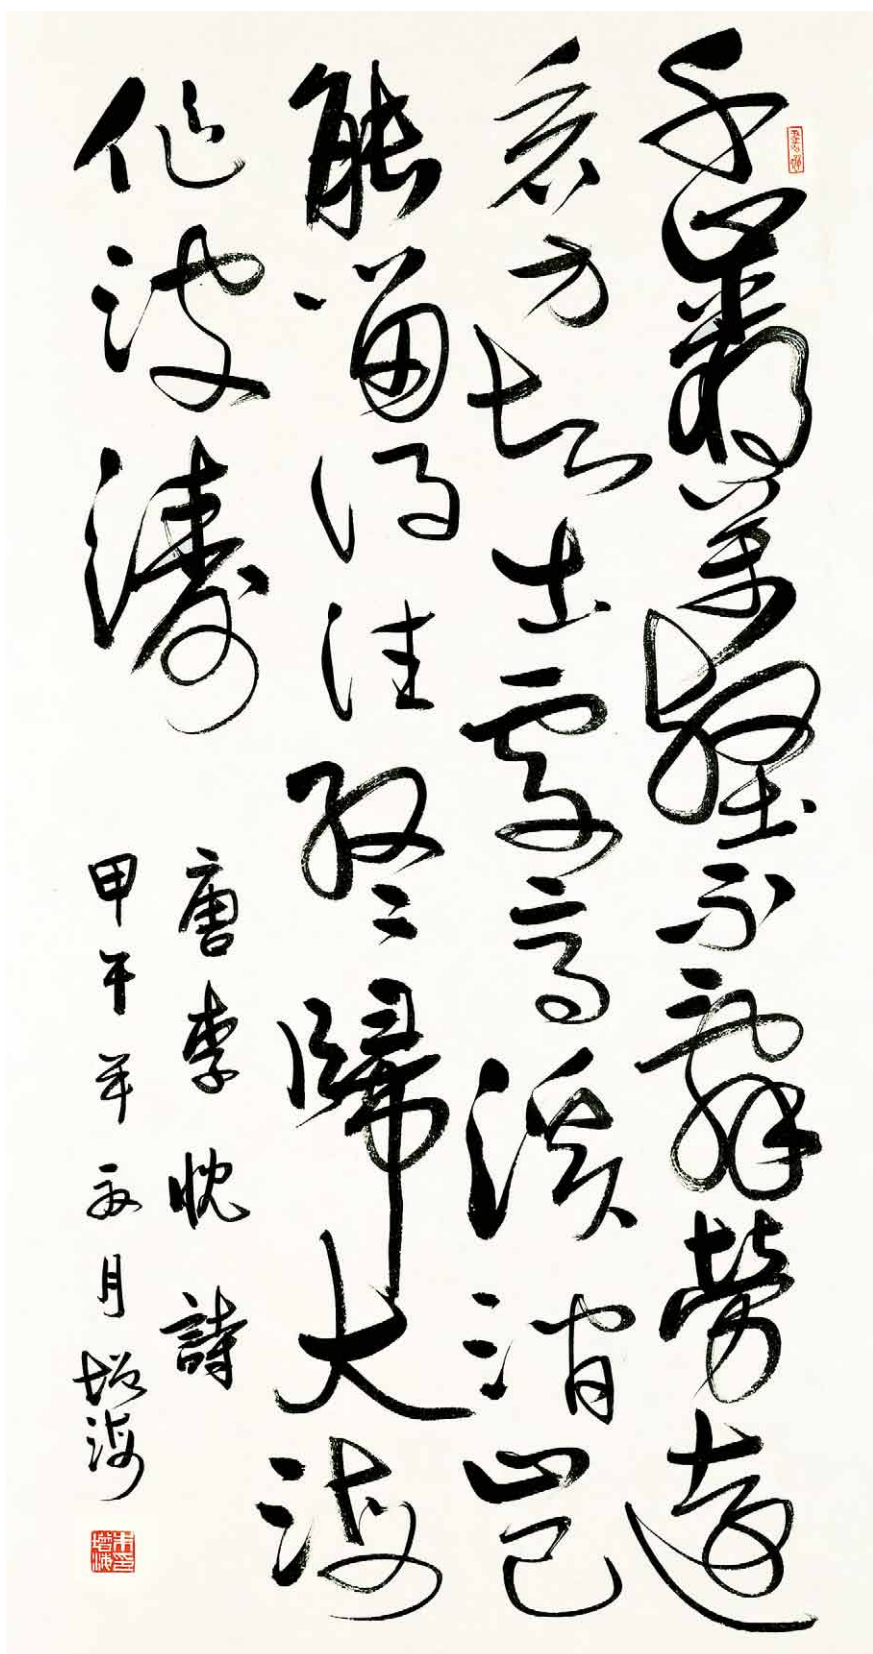 千巖萬壑不辭勞遠
看方知出處高溪澗豈
能留得住終歸大海
作波濤
唐李忱詩
甲午年月增海
朱印增海